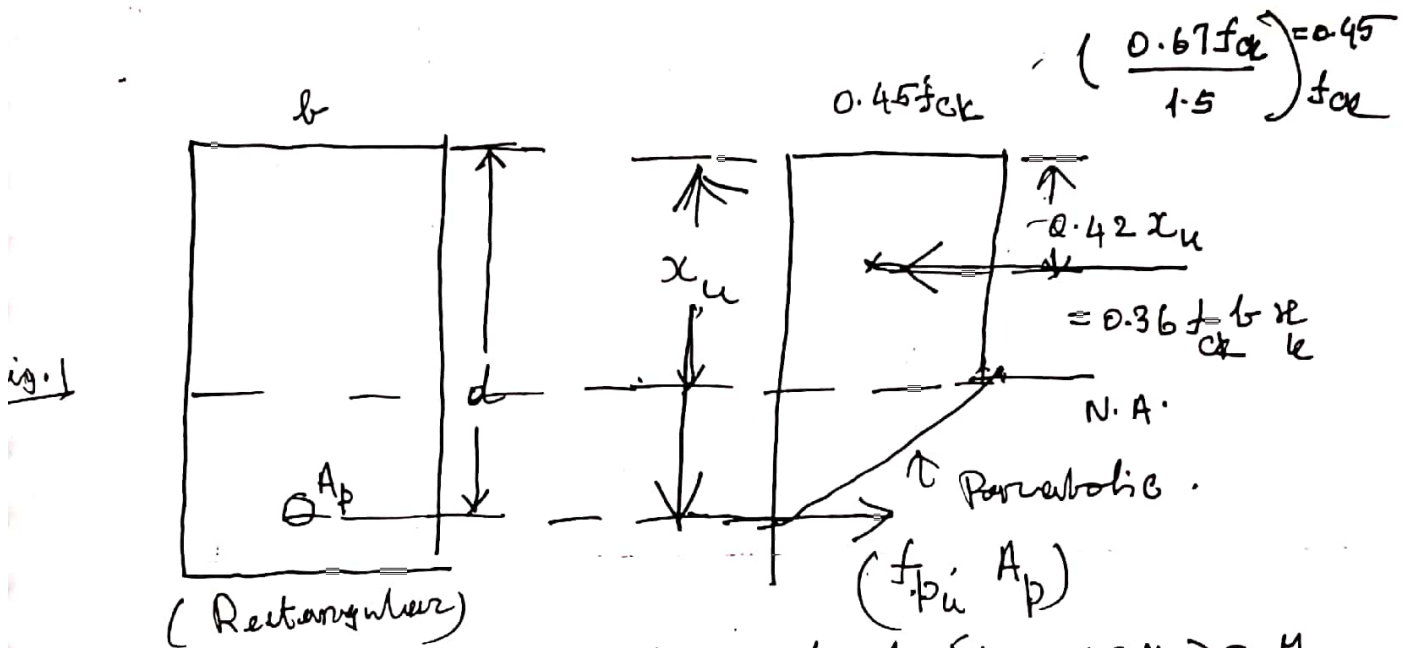 ( 0.67 fck / 1.5 ) = 0.45 fck
b
0.45 fck
0.42 xu
xu
= 0.36 fck b xu
ig. 1
d
N. A.
Ap
Parabolic .
(fpu Ap)
( Rectangular)